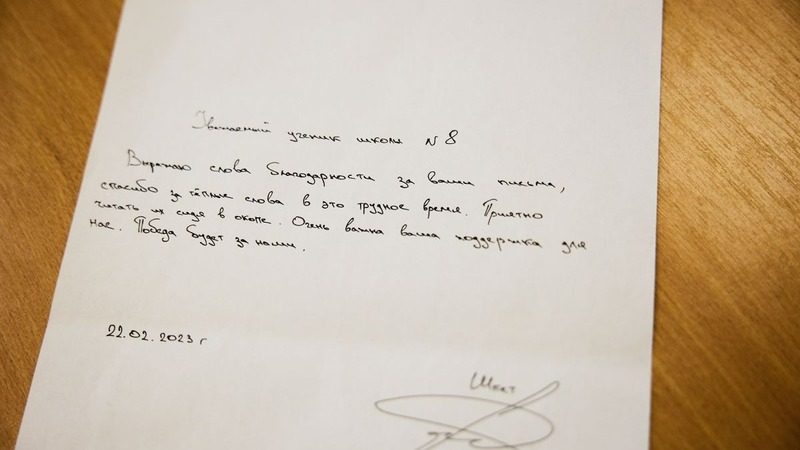 Уважаемый ученик школы N 8
Выражаю слова благодарности за ваши письма,
спасибо за тёплые слова в это трудное время. Приятно
читать их сидя в окопе. Очень важна ваша поддержка для
нас. Победа будет за нами.
22.02.2023 г